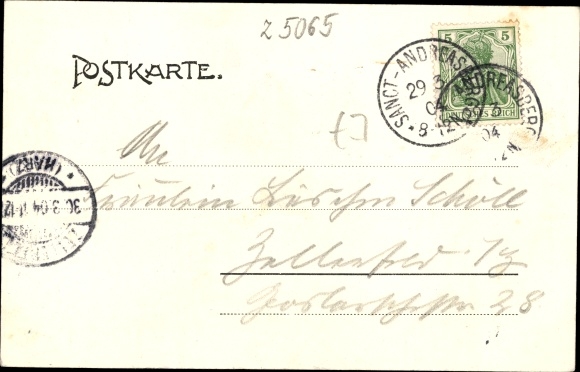 Z 5065
POSTKARTE.
5 5
DEUTSCHES REICH
SANCT-ANDREASBERG
29 3
04
* 8-12N
ANDREASBERG
3
04
12N
An
Fräulein Lieschen Schöll
Zellerfeld i/H
Goslarschestr 28
* (HARZ)
30.3.04.11-12